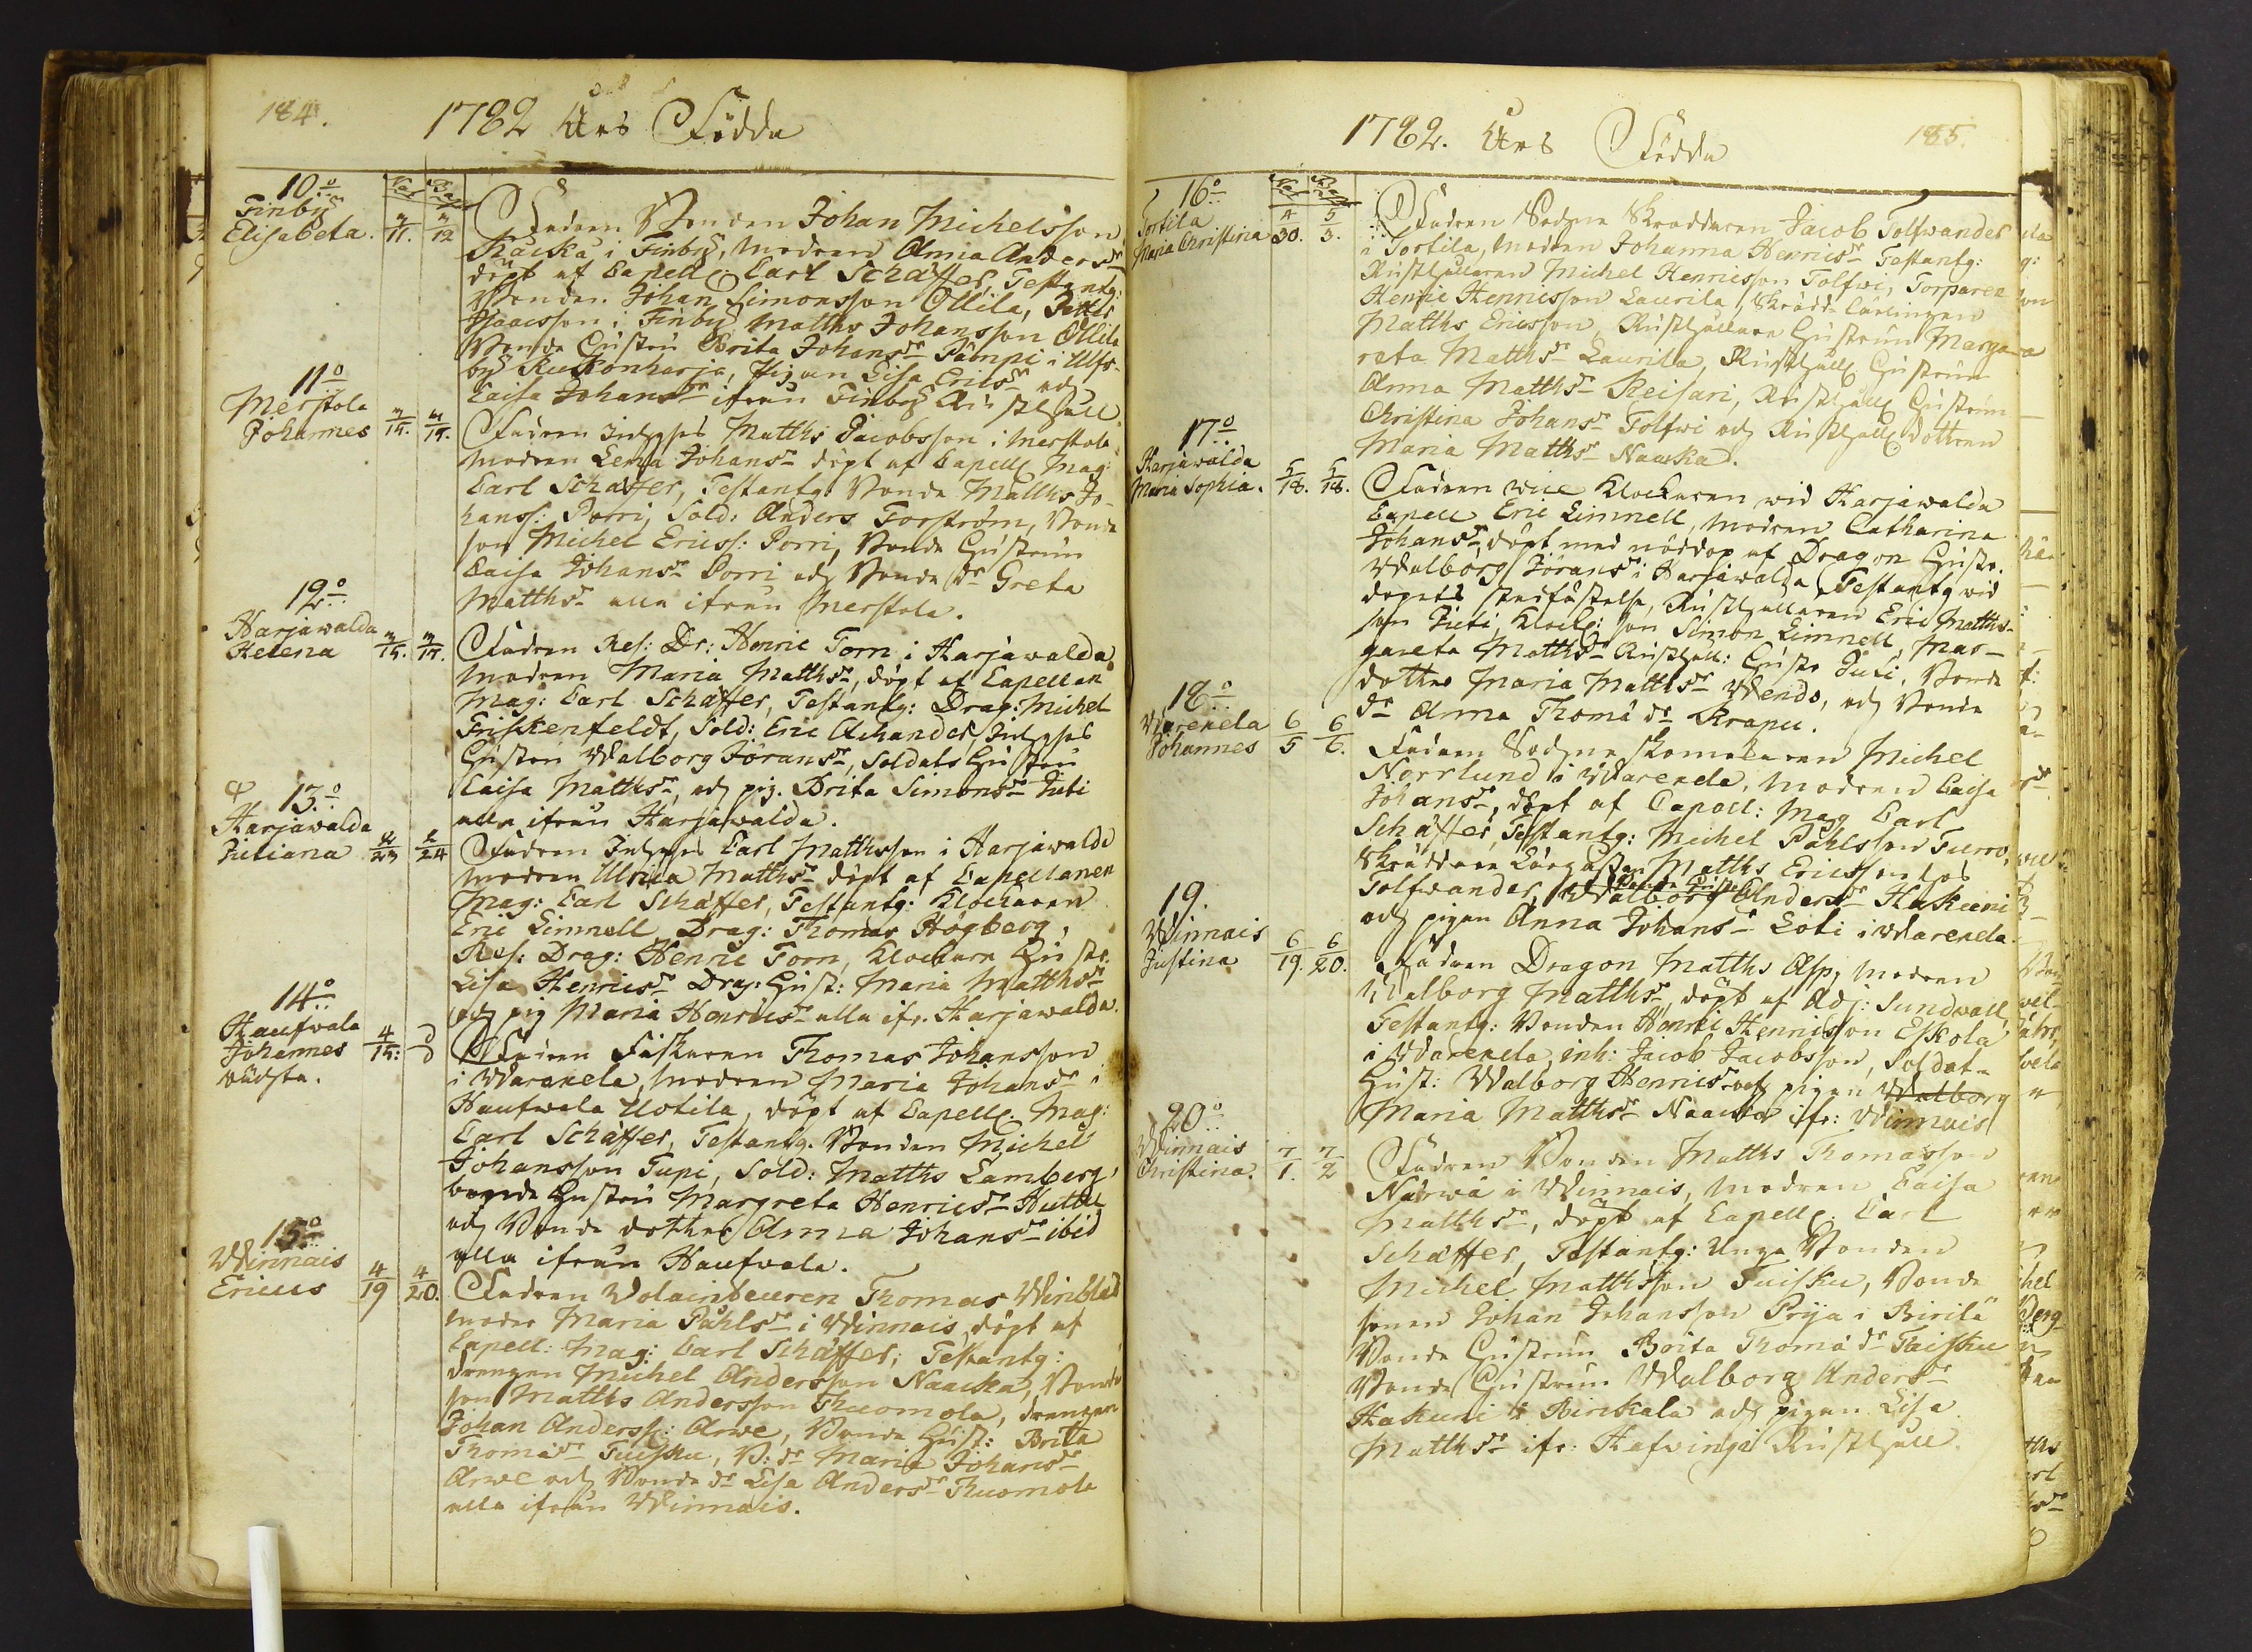 184.
1782 Års Födda
10:o
Finby
Elisabeta.
Nat
Bap
3/11.
3/12
Fadren Bonden Johan Michelsson
Kaucka i Finby, modren Anna Andersdr
döpt af Capell: Carl Schäffer, Testantg:
Bonden Johan Simonsson Ollila,
Isaacsson i Finby, Matths Johansson Ollila
Bonde Hustru Brita Johansdr Pumpi i Ulfs-
by Kuckonharja, Pigan Lisa Ericsdr och
Caisa Johansdr ifrån Finby Rusthåll
11:o
Merstola
Johannes
3/14.
3/14.
Fadren Inhyses Matths Jacobsson i Merstola
modren Lena Johansdr döpt af Capell: Mag:
Carl Schäffer, Testantg: Bonde Matths Jo-
hanss: Porri, Sold: Anders Forström, Bonde
son Michel Ericss: Porri, Bonde Hustrun
Caisa Johansdr Porri och Bonde dr Greta
Matthsdr alla ifrån Merstola.
12:o
Harjawalda
Helena
3/15.
3/17.
Fadren Res: Dr: Henric Torn i Harjawalda
modren Maria Matthsdr, döpt af Capellan
Mag: Carl Schäffer, Testantg: Drag: Michel
Friskenfeldt, Sold: Eric Achander, Inhyses
Hustru Walborg Göransdr, Soldats Hustru
Caisa Matthsdr, och pig. Brita Simonsdr Juti
alla ifrån Harjawalda.
13:o
Harjawalda
Juliana
2/23
2/24
Fadren Inhyses Carl Matthsson i Harjawalda
modren Ulrica Matthsdr döpt af Capellanen
Mag: Carl Schäffer, Testantg: Klockaren
Eric Limnell, Drag: Thomas Högberg,
Res: Drag: Henric Torn, Klockare Hustr.
Lisa Henricsdr Drag: Hust: Maria Matthsdr
och pig Maria Henricsdr alla ifr. Harjawalda.
14:o
Haufwala
Johannes
oächta.
4/15:
Fadren Fiskaren Thomas Johansson
i Warekela, modren Maria Johansdr i
Haufwala Uotila, döpt af Capell: Mag:
Carl Schäffer, Testantg. Bonden Michel
Johansson Tupi, Sold: Matths Lamberg,
bonde Hustru Margreta Henricsdr
och Bonde dotter Anna Johansdr ibid
alla ifrån Haufwala.
15:o
Winnais
Ericus
4/19
4/20.
Fadren Thomas Winblad
moder Maria Påhlsdr i Winnais, döpt af
Capell: Mag: Carl Schäffer; Testantg:
drengen Michel Andersson Naucka, Bonde
son Matths Andersson Thuomola, drengen
Johan Anderss: Arwe, Bonde Hust: Brita
Thomädr Tuisku, B: dr Maria Johansdr
Arwe och Bonde dr Lisa Andersdr Thuomola
alla ifrån Winnais.
1782. Års Födda
185.
16:o
Tortila
Maria Christina
Nat
Bap
4/30.
5/3.
Fadren Sockne Skräddaren Jacob Tolfwander
i Tortila, modren Johanna Henricsdr Testantg:
Rusthållaren Michel Henricsson Tolfwi, Torparen
Henric Henricsson Laurila, Skrädd: Lärlingen
Matths Ericsson, Rusthållare Hustrun Marga-
reta Matthsdr Laurila, Rusthåll: Hustrun
Anna Matthsdr Keisari, Rusthåll: Hustrun
Christina Johansdr Tolfwi och Rusthåll: dottren
Maria Matthsdr Naucka.
17:o
Harjawalda
Maria Sophia.
5/18.
5/18.
Fadren vice Klockaren wid Harjawalda
Capell Eric Limnell, modren Catharina
Johansdr, döpt med nöddop af Dragon Hustr.
Walborg Göransdr i Harjawalda, Testantg wid
dopets stadfästelse, Rusthållaren Eric Matths-
son Juti, Klock: son Simon Limnell, Mar-
gareta Matthsdr Rusthåll: Hustr Juti, Bonde
dotter Maria Matthsdr Wends, och Bonde
dr Anna Thomädr Krapu.
18:o
Warekela
Johannes
6/5
6/6.
Fadren Sockne skomakaren Michel
Norrlund i Warekela, modren Caisa
Johansdr, döpt af Capell: Mag Carl
Schäffer, Testantg: Michel Påhlsson Furro,
Skräddare Lärgossen Matths Ericsson hos
Tolfwander, Bonde Hustr Walborg Andersdr Hakuni
och pigan Anna Johansdr Loti i Warekela.
19.
Winnais
Justina
6/19.
6/20.
Fadren Dragon Matths Asp, modren
Walborg Matthsdr, döpt af Adj: Sundwall
Testantg: Bonden Henric Henricsson Eskola
i Warekela, inh: Jacob Jacobsson, Soldat-
Hust: Walborg Henricsdr och pigan Walborg
Maria Matthsdr Naucka ifr: Winnais
20:o
Winnais
Christina.
7/1.
7/2
Fadren Bonden Matths Thomasson
Närwä i Winnais, modren Caisa
Matthsdr, döpt af Capell: Carl
Schäffer, Testantg: Unga Bonden
Michel Matthsson Tuisku, Bonde
sonen Johan Johansson Prija i Birilä
Bonde Hustrun Brita Thomädr Tuisku
Bonde Hustrun Walborg Andersdr
Hakuni i Birckala och pigan Lisa
Matthsdr ifr: Hafwingi Rusthåll.